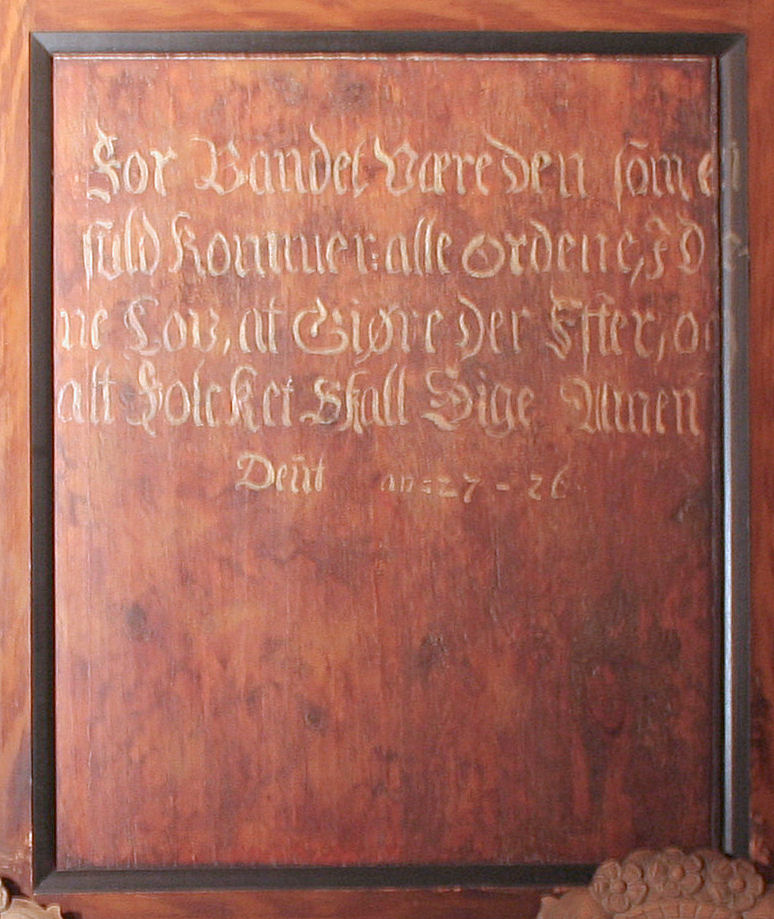 For Bandet, Være den sōm ei
fuld Kommer: alle Ordene, J De-
ne Lov, at Giøre der Effter, oc
alt Folcket Skall Sige Amen
Deūt an=27-26